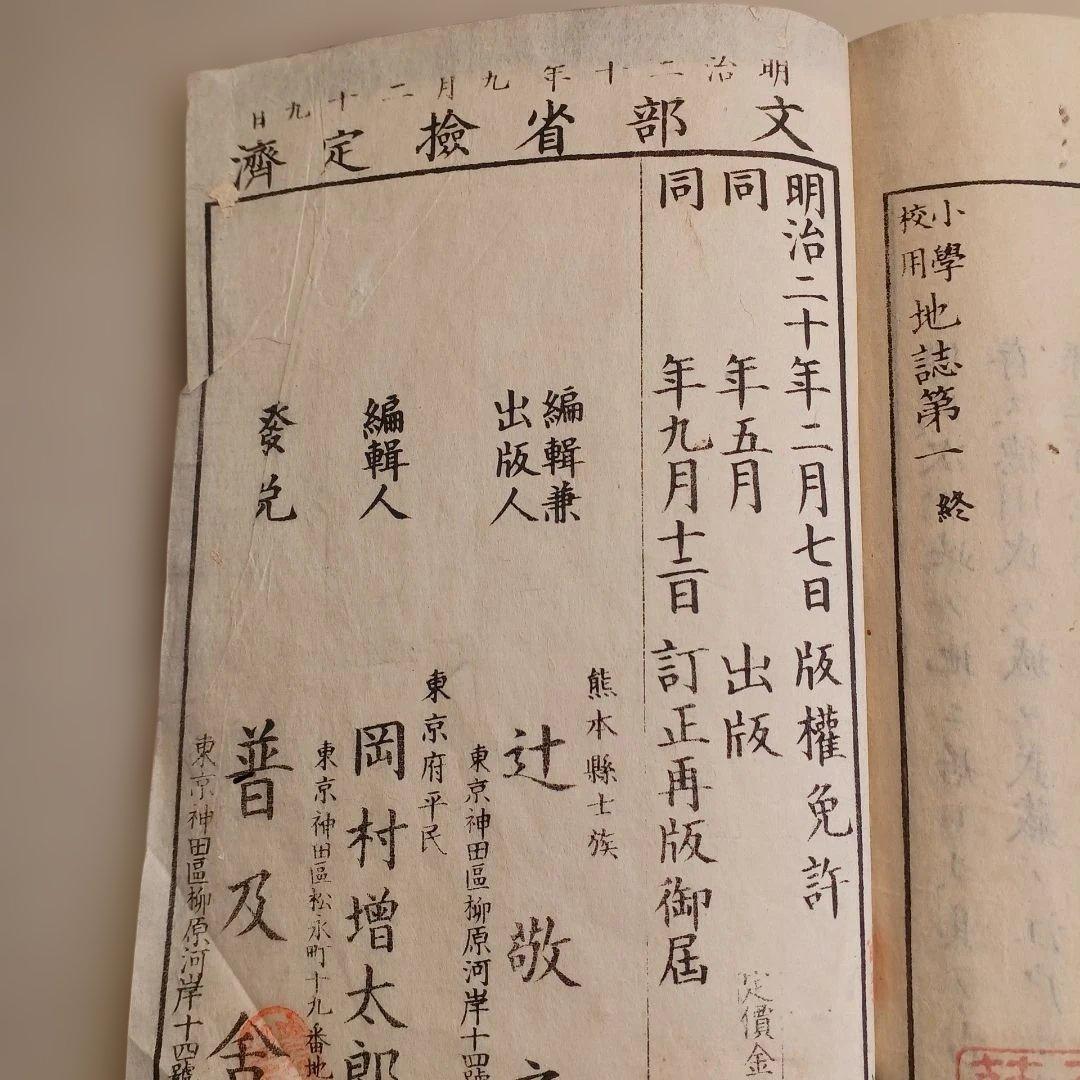 小學
校用
地誌第一 終
明治二十年九月二十九日
文部省檢定濟
明治二十年二月七日版權免許
同 年五月 出版
同 年九月十二日訂正再版御届
定價金
熊本縣士族
編輯兼
出版人
辻敬之
東京神田區柳原河岸十四號
東京府平民
編輯人
岡村增太郎
東京神田區松永町十九番地
發兌
普及舍
東京神田區柳原河岸十四號